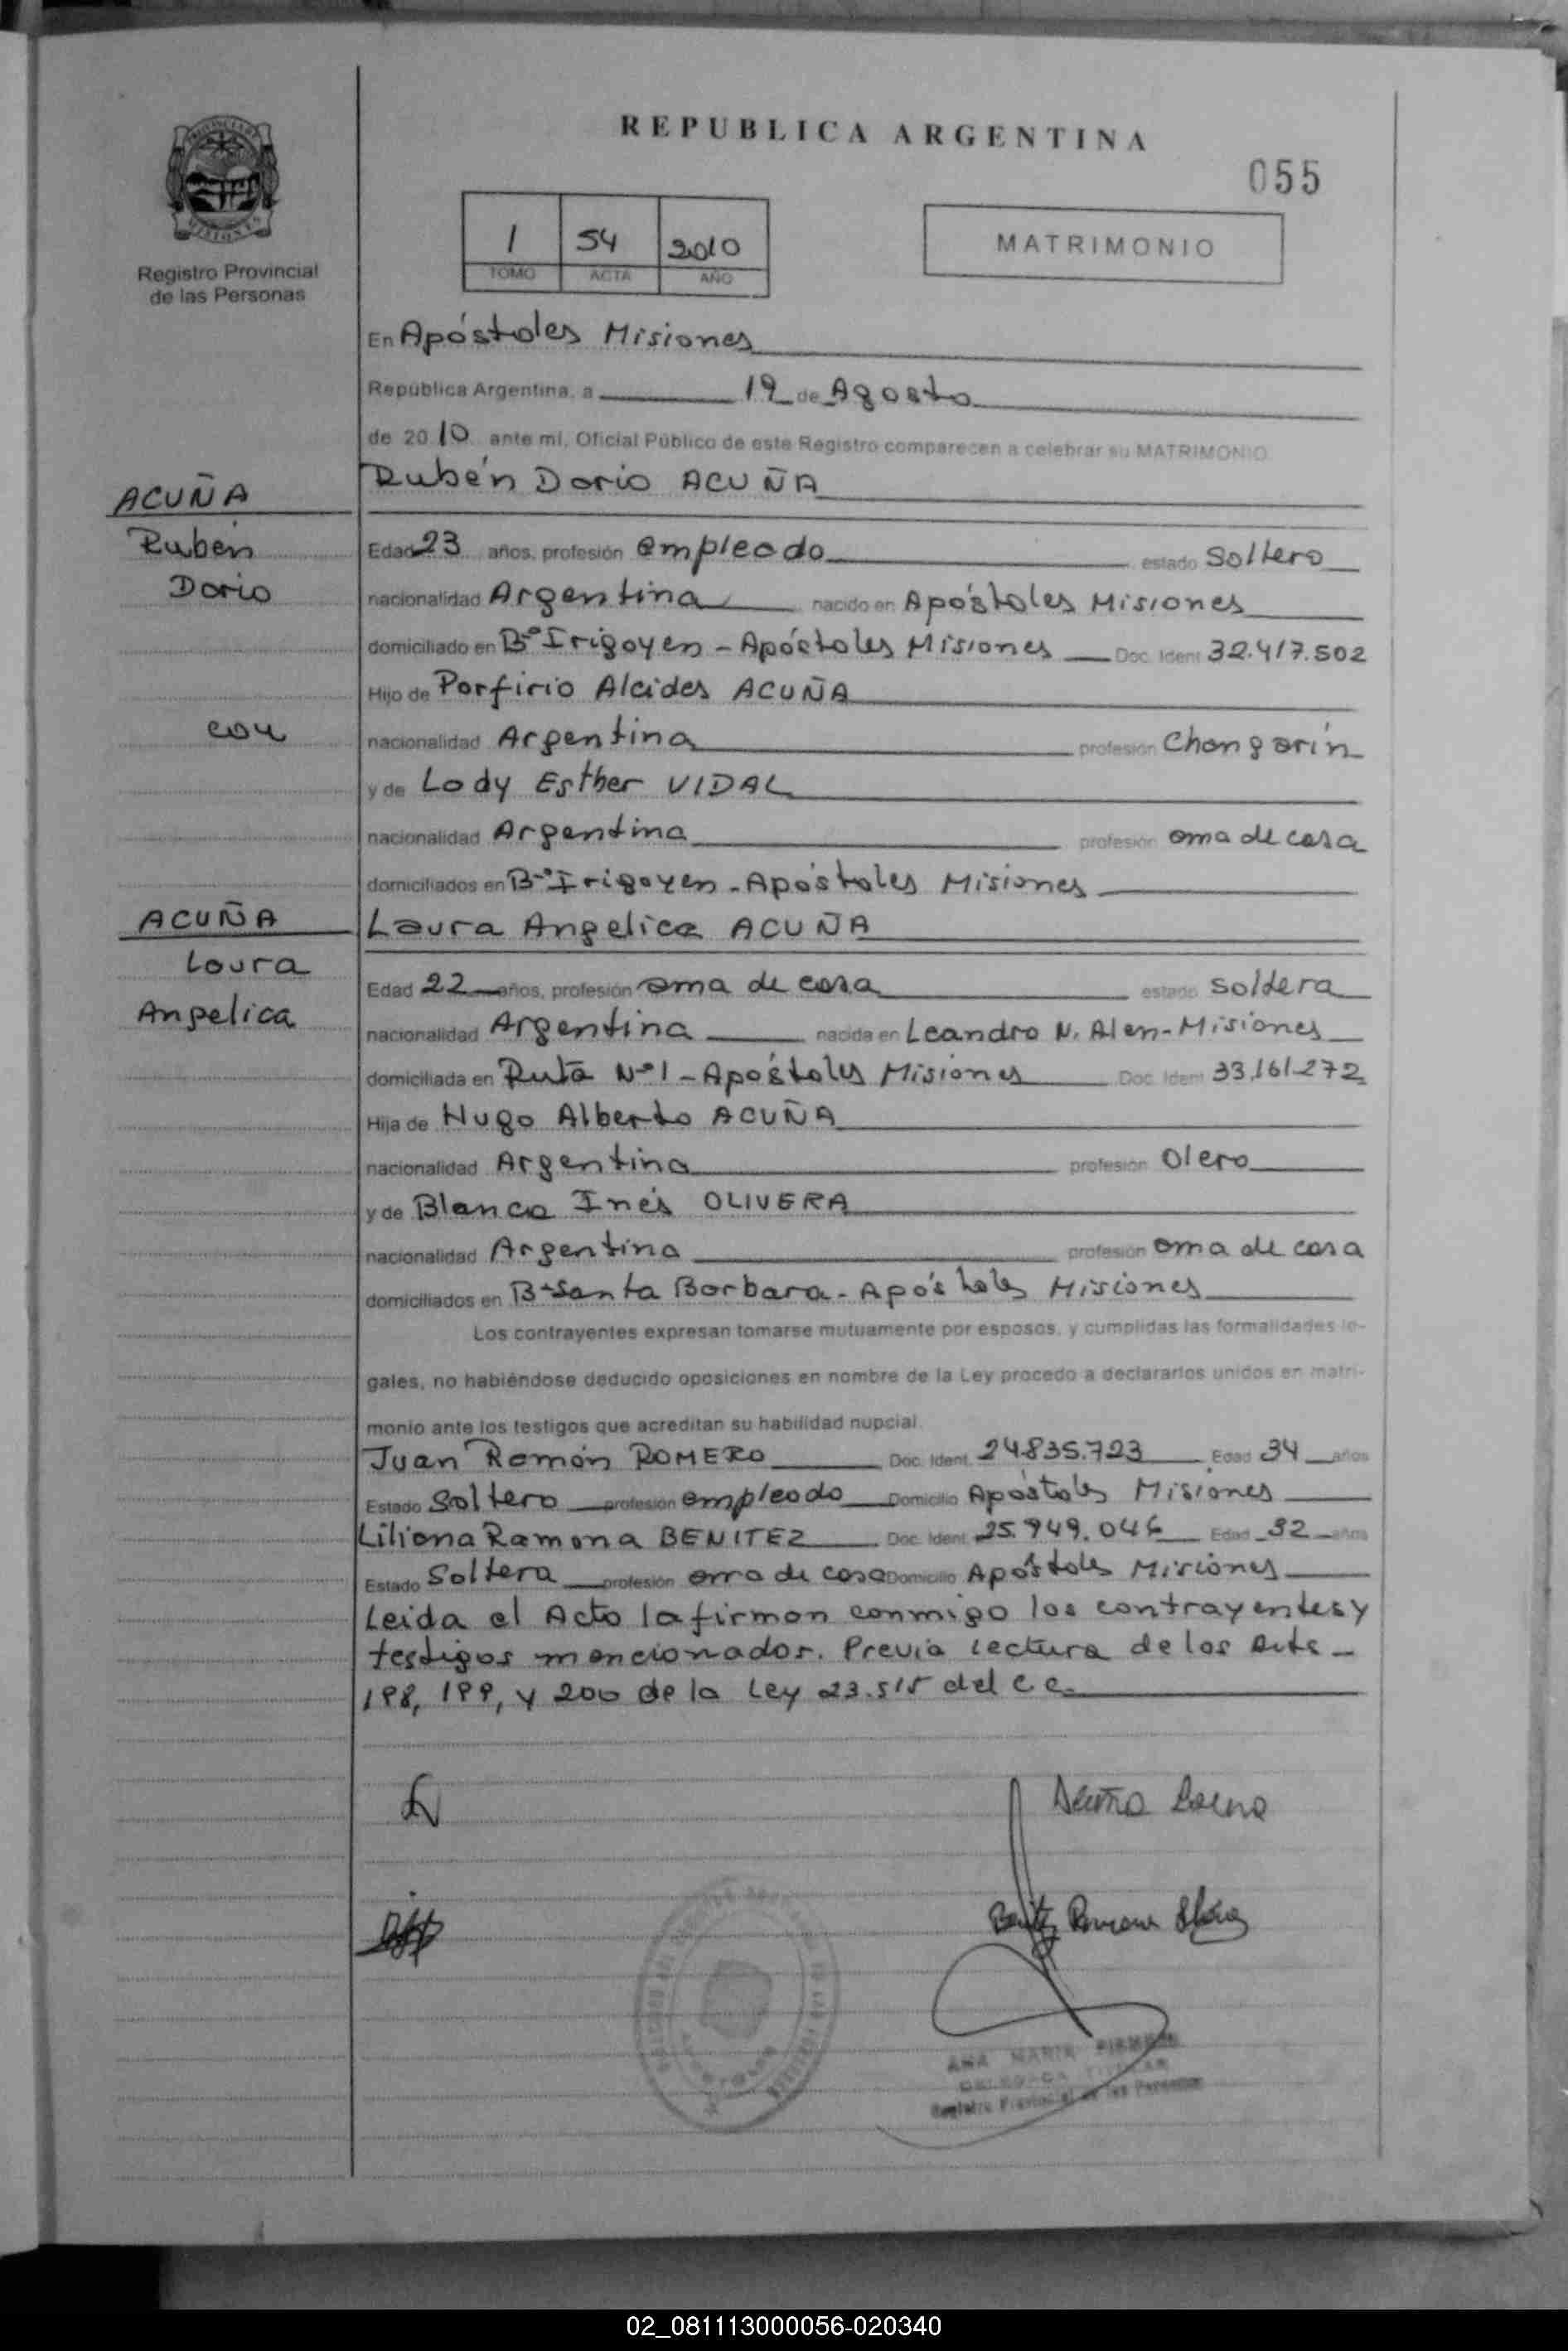 REPUBLICA ARGENTINA
055
1 54 2010
TOMO ACTA AÑO
MATRIMONIO
Registro Provincial
de las Personas
En Apóstoles Misiones
República Argentina, a 19 de Agosto
de 2010 ante mi, Oficial Público de este Registro comparecen a celebrar su MATRIMONIO
Rubén Dario ACUÑA
ACUÑA
Rubén
Dario
Edad 23 años, profesión empleado estado Soltero
nacionalidad Argentina nacido en Apóstoles Misiones
domiciliado en Bº Irigoyen - Apóstoles Misiones Doc. Ident 32.417.502
Hijo de Porfirio Alcides ACUÑA
con
nacionalidad Argentina profesión Changarín
y de Lady Esther VIDAL
nacionalidad Argentina profesión ama de casa
domiciliados en Bº Irigoyen - Apóstoles Misiones
ACUÑA
Laura
Angelica
Laura Angelica ACUÑA
Edad 22 años, profesión ama de casa estado soltera
nacionalidad Argentina nacida en Leandro N. Alen - Misiones
domiciliada en Ruta Nº 1 - Apóstoles Misiones Doc. Ident 33.161.272
Hija de Hugo Alberto ACUÑA
nacionalidad Argentina profesión Olero
y de Blanca Inés OLIVERA
nacionalidad Argentina profesión ama de casa
domiciliados en Bº Santa Barbara - Apóstoles Misiones
Los contrayentes expresan tomarse mutuamente por esposos, y cumplidas las formalidades le-
gales, no habiéndose deducido oposiciones en nombre de la Ley procedo a declararlos unidos en matri-
monio ante los testigos que acreditan su habilidad nupcial.
Juan Ramón ROMERO Doc. Ident. 24.835.723 Edad 34 años
Estado Soltero profesión empleado Domicilio Apóstoles Misiones
Liliana Ramona BENITEZ Doc. Ident. 25.949.046 Edad 32 años
Estado Soltera profesión ama de casa Domicilio Apóstoles Misiones
Leida el Acta la firman conmigo los contrayentes y
testigos mencionados. Previa lectura de los Arts -
198, 199, y 200 de la Ley 23.515 del c.c.
Acuña Laura
Benitez Ramona
ANA MARIA
DELEGADA TITULAR
Registro Provincial de las Personas
02_081113000056-020340